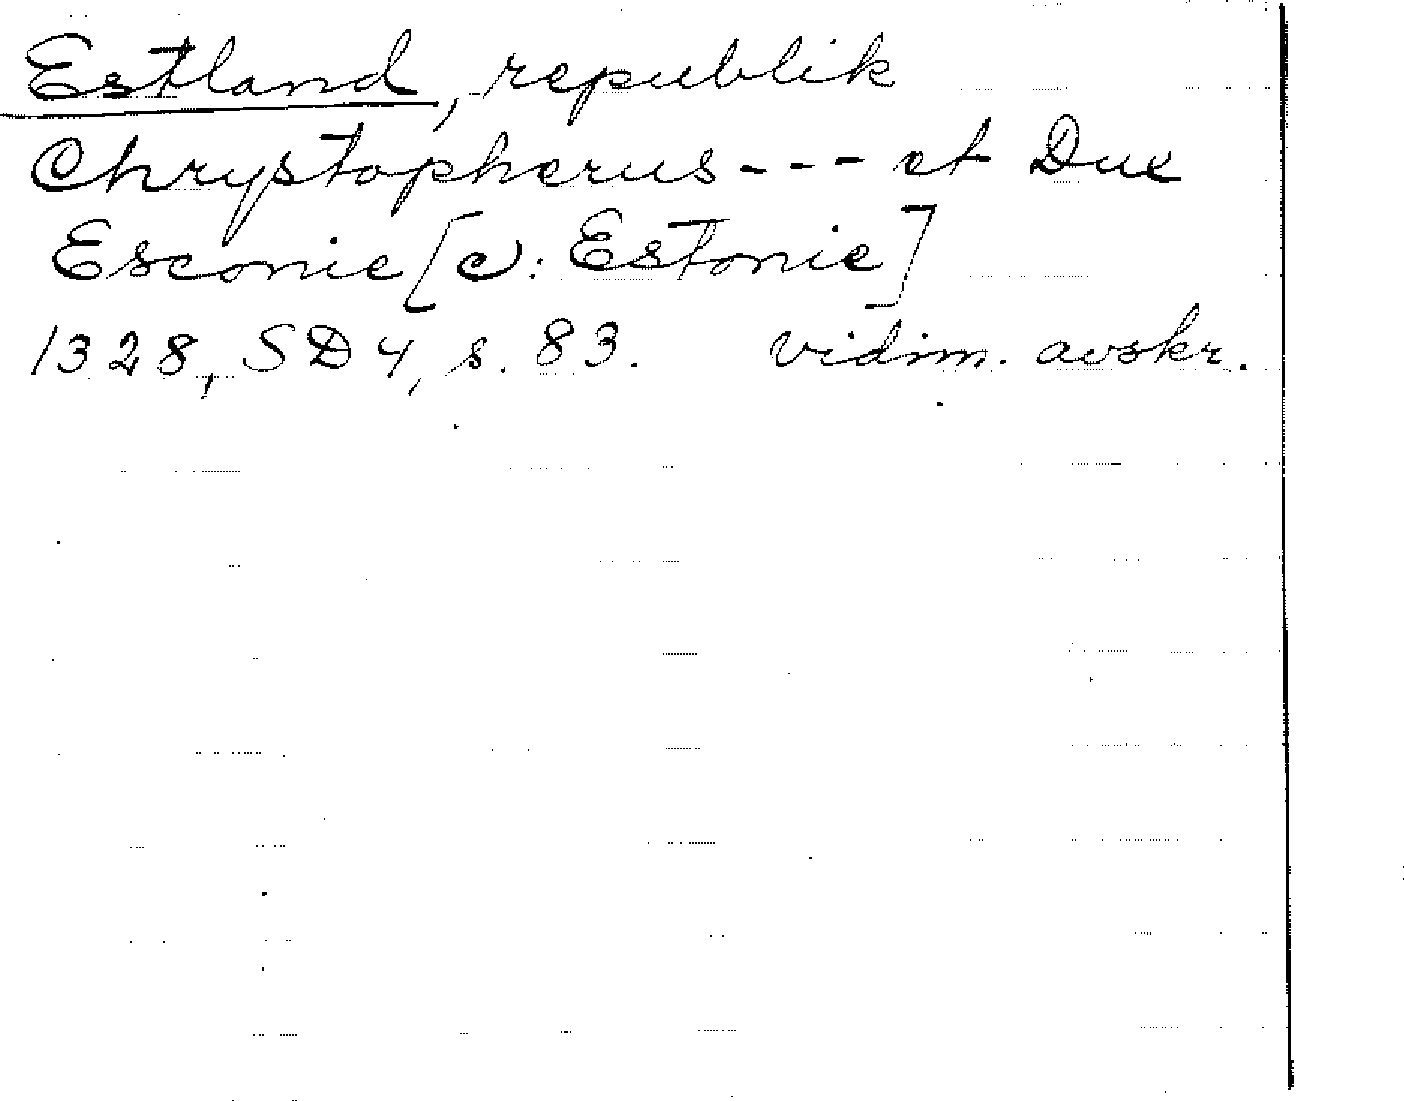 Estland, republik
Chrystopherus --- et Dux
Esconie [ɔ: Estonie]
1328, SD4, s. 83. vidim. avskr.